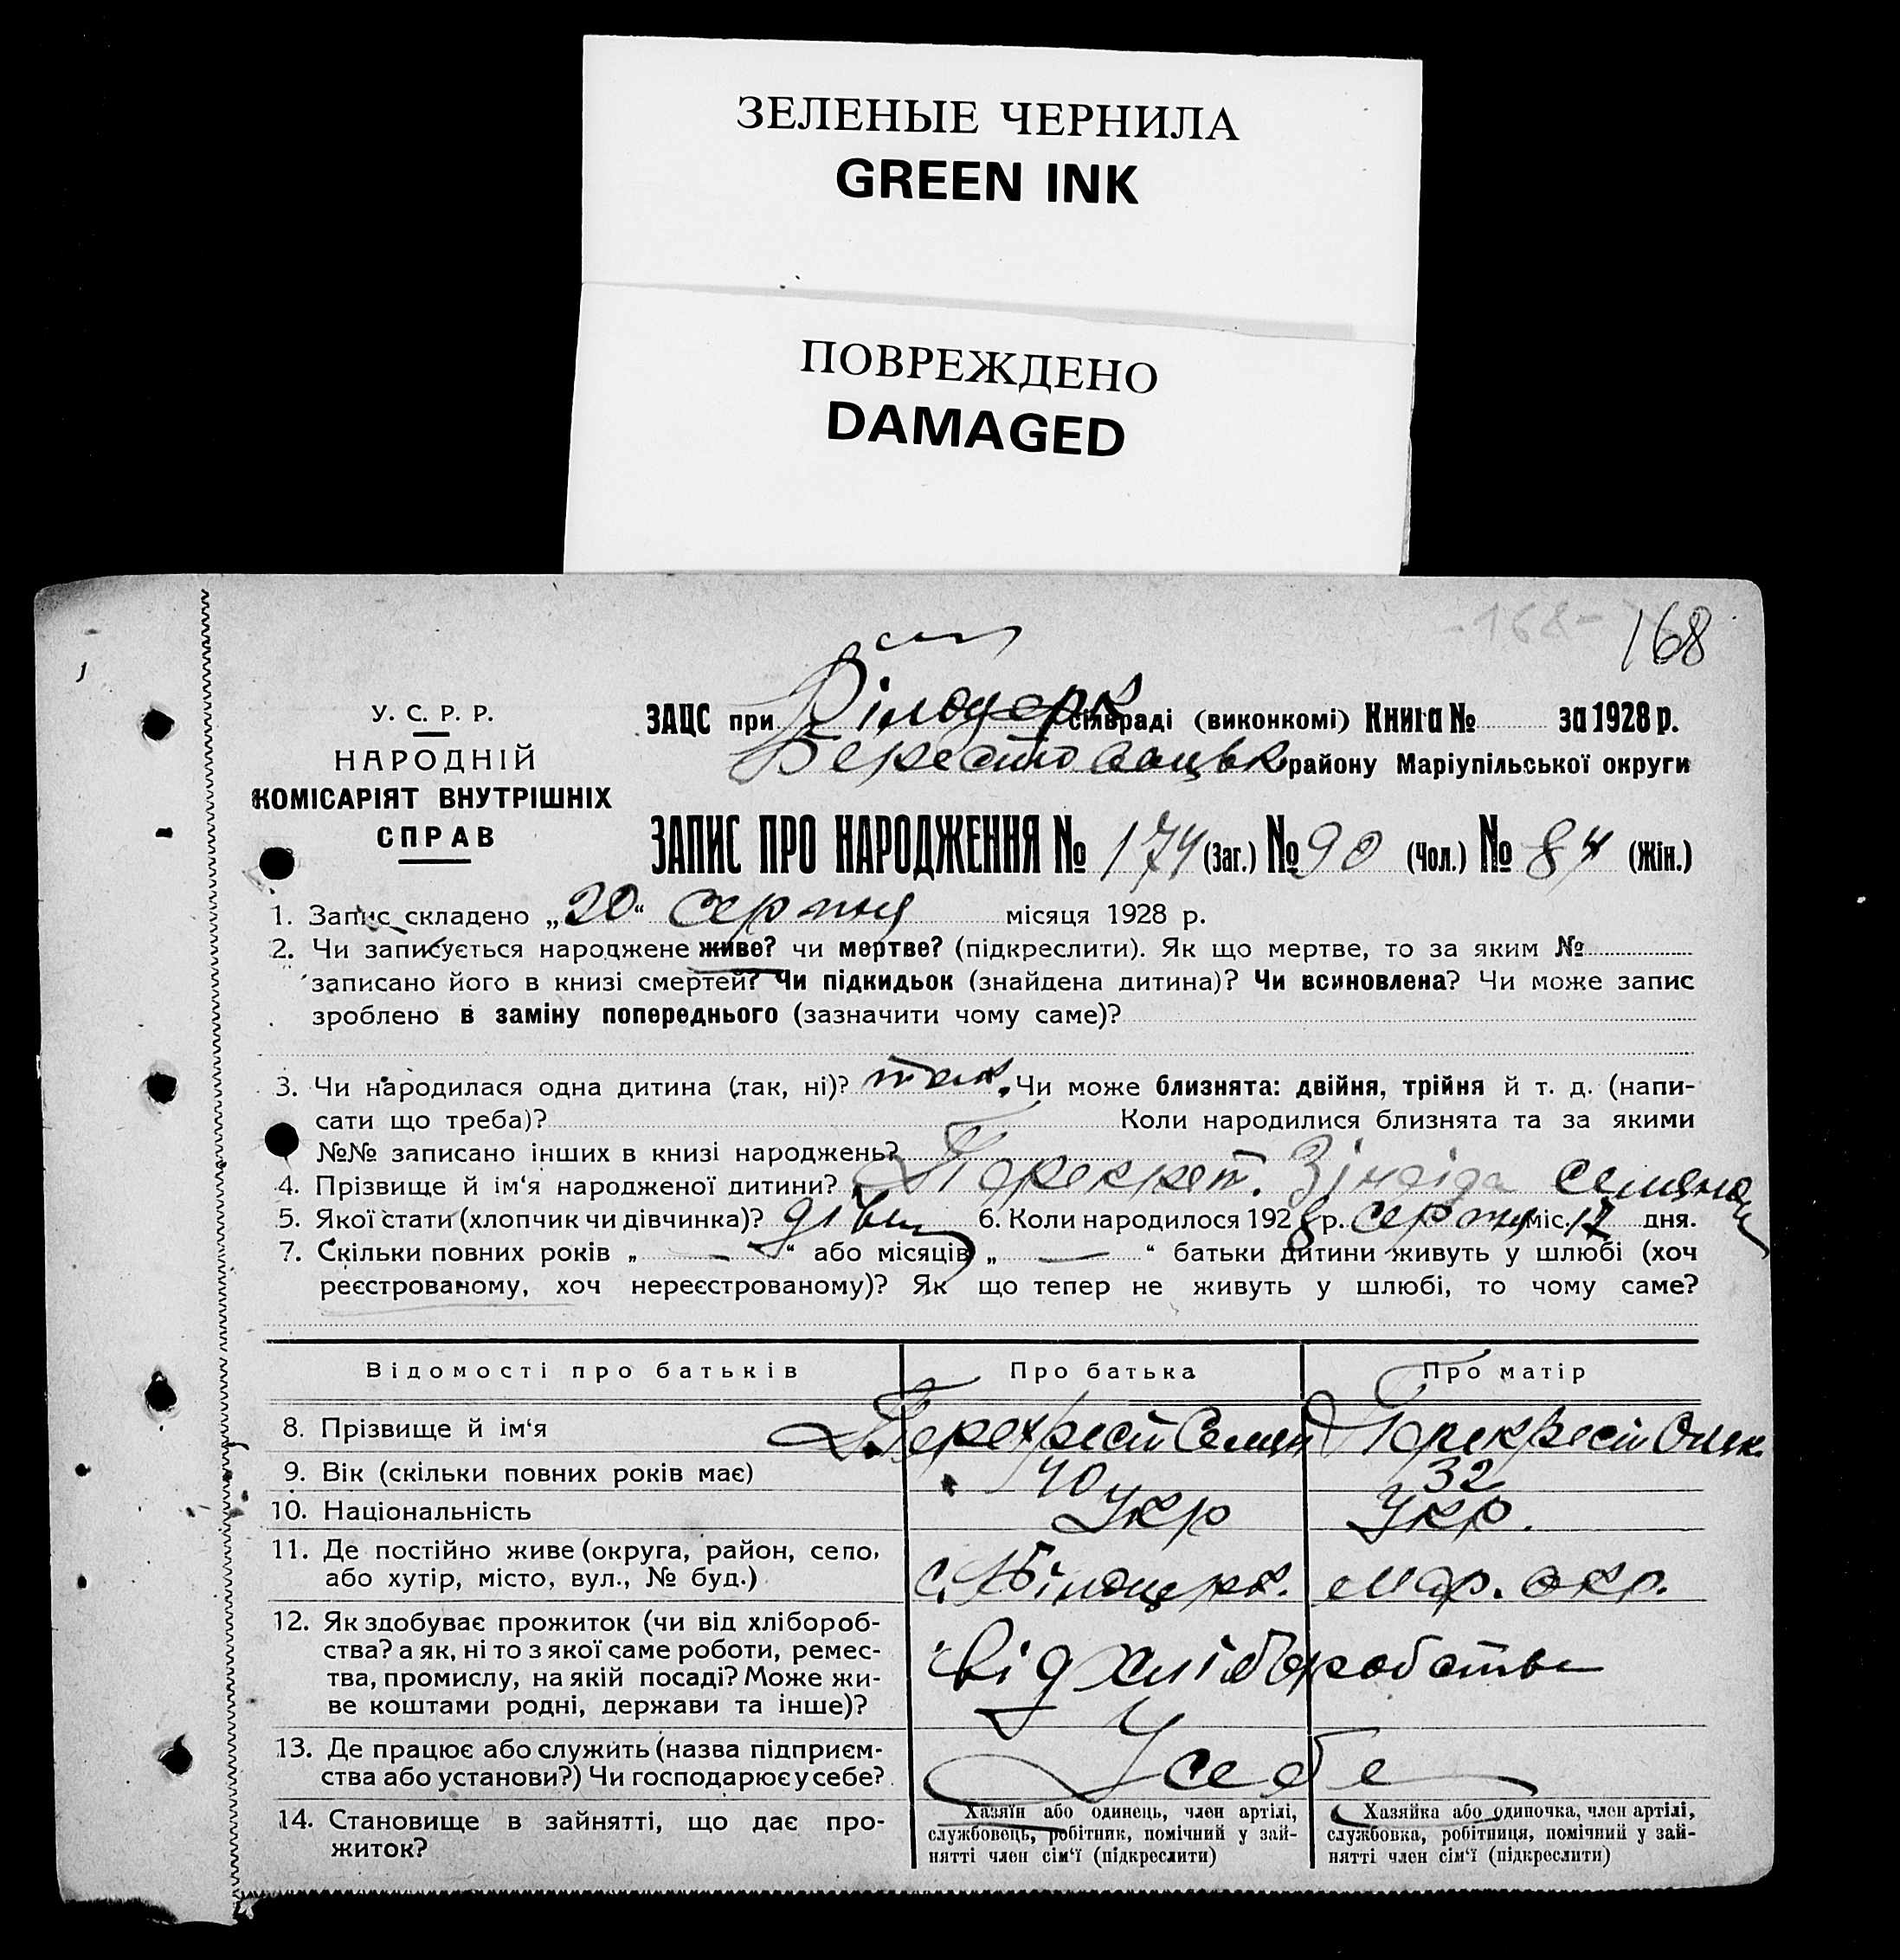 ЗЕЛЕНЫЕ ЧЕРНИЛА
GREEN INK
ПОВРЕЖДЕНО
DAMAGED
168
У. С. Р. Р.
НАРОДНІЙ
КОМІСАРІЯТ ВНУТРІШНІХ
СПРАВ
ЗАЦС при Білоцерк сільраді (виконкомі) Книга № за 1928 р.
району Маріупільської округи
ЗАПИС ПРО НАРОДЖЕННЯ № 174 (Заг.) № 90 (Чол.) № 84 (Жін.)
1. Запис складено „20“ серпня місяця 1928 р.
2. Чи записується народжене живе? чи мертве? (підкреслити). Як що мертве, то за яким №
записано його в книзі смертей? Чи підкидьок (знайдена дитина)? Чи всиновлена? Чи може запис
зроблено в заміну попереднього (зазначити чому саме)?
3. Чи народилася одна дитина (так, ні)? так. Чи може близнята: двійня, трійня й т. д. (напи-
сати що треба)? Коли народилися близнята та за якими
№№ записано інших в книзі народжень?
4. Прізвище й ім‘я народженої дитини? Перекрест. Зінаіда
5. Якої стати (хлопчик чи дівчинка)? дівч 6. Коли народилося 1928 р. серпня міс. 17 дня.
7. Скільки повних років „ — “ або місяців „ — “ батьки дитини живуть у шлюбі (хоч
реєстрованому, хоч нереєстрованому)? Як що тепер не живуть у шлюбі, то чому саме?
Відомості про батьків Про батька Про матір
8. Прізвище й ім‘я Перехрест Семен Перекрест Олек.
9. Вік (скільки повних років має) 40 32
10. Національність Укр Укр.
11. Де постійно живе (округа, район, село, с. Білоцерк. Мар. окр.
або хутір, місто, вул., № буд.)
12. Як здобуває прожиток (чи від хлібороб-
ства? а як, ні то з якої саме роботи, ремес-
тва, промислу, на якій посаді? Може жи- від хліборобства
ве коштами родні, держави та інше)?
13. Де працює або служить (назва підприєм- У себе
ства або установи?) Чи господарює у себе?
14. Становище в зайнятті, що дає про-
житок?
Хазяїн або одинець, член артілі,
службовець, робітник, помічний у зай-
нятті член сім‘ї (підкреслити)
Хазяйка або одиночка, член артілі,
службовка, робітниця, помічний у зай-
нятті член сім‘ї (підкреслити)